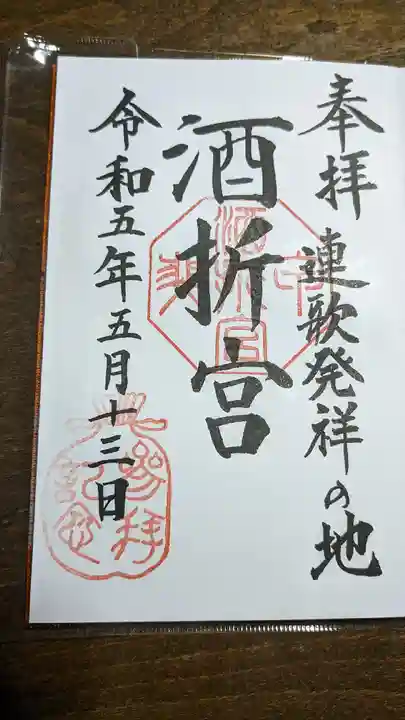 奉拝
連歌発祥の地
酒折宮
令和五年五月十三日
参拝
記念